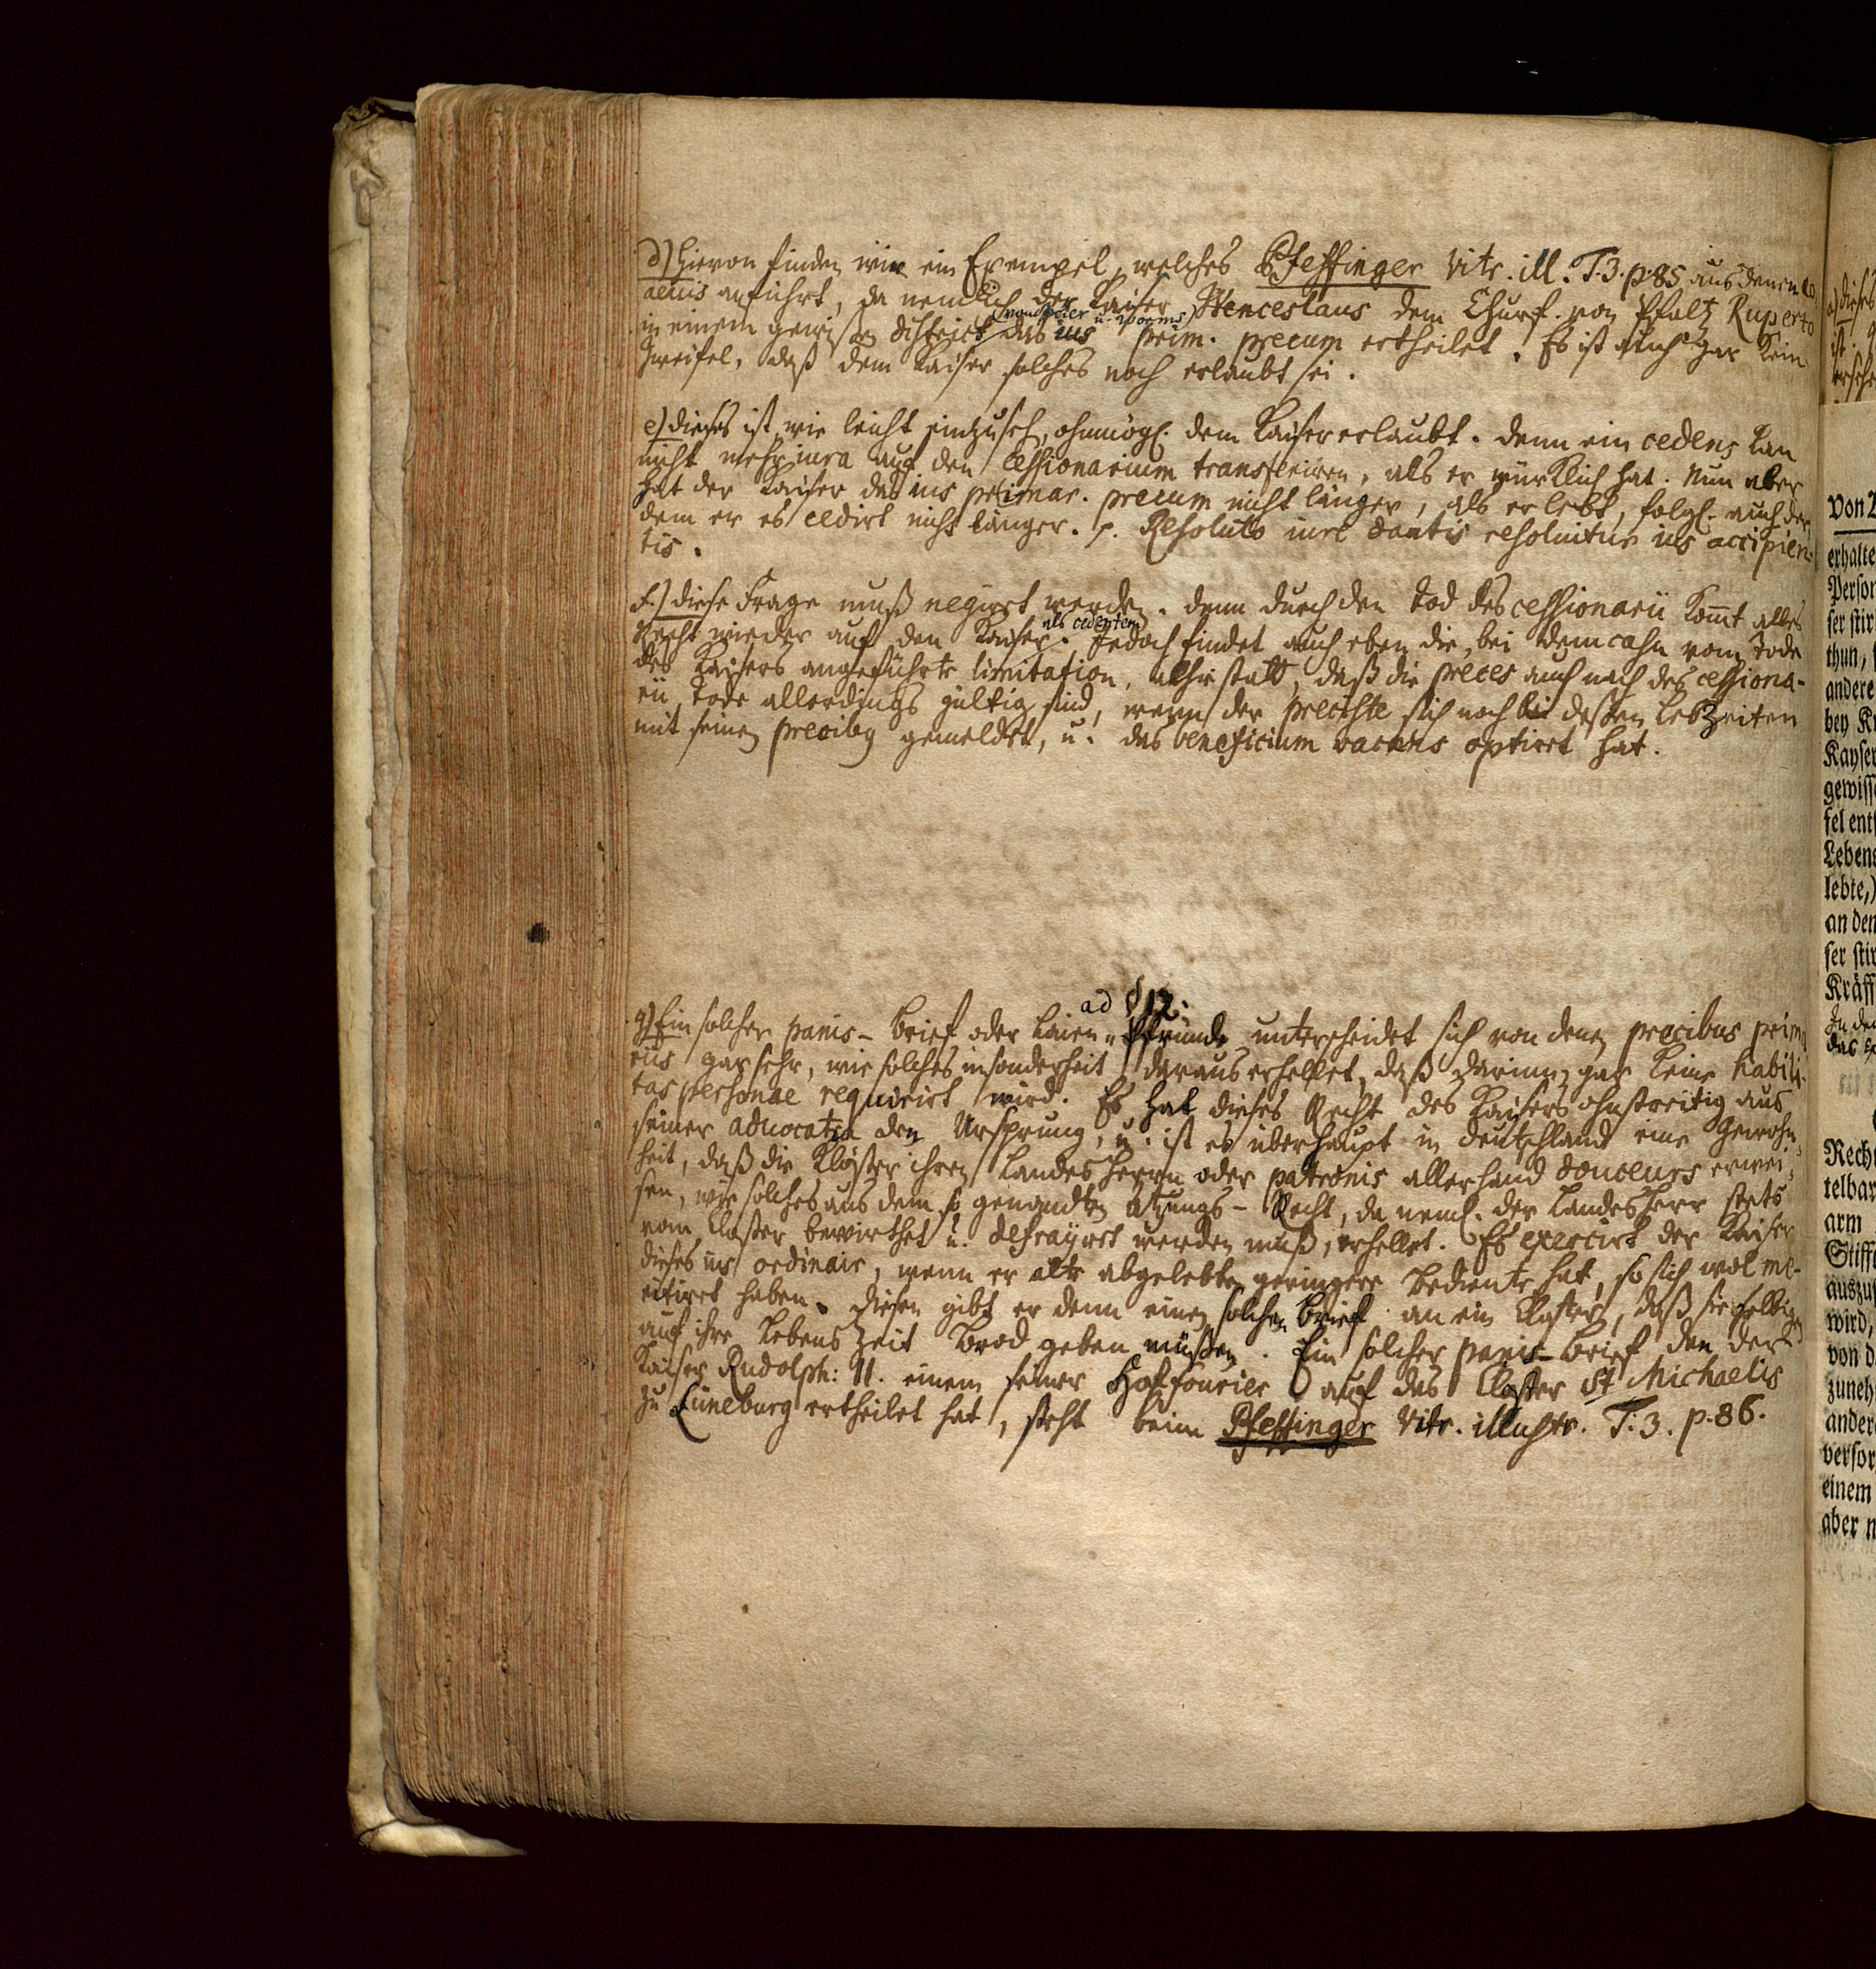 d) Hievon finden wir ein Exempel, welches Pfeffinger Vitr. ill. T. 3. p. 85 aus denen
anführt, da nemlich der Kaiser Wenceslaus dem Churf. von Pfaltz Ruperto
(von Speier u. Worms)
in einem gewißen District das ius prim. precum ertheilet. Es ist auch gar kein
Zweifel, daß dem Kaiser solches noch erlaubt sei.
e) dieses ist, wie leicht einzusehen, ohnmögl. dem Kaiser erlaubt. Denn ein cedens kan
nicht mehr iura auf den Cessionarium transferiren, als er würklich hat. Nun aber
hat der Kaiser das ius primar. precum nicht länger, als er lebt, folgl. auch der,
dem er es cedirt nicht länger. p. Resoluto iure dantis resolvitur ius accipien-
tis.
f.) diese Frage muß negirt werden. Denn durch den Tod des cessionarii komt alles
als cedentem
Recht wieder auf den Kaiser. Jedoch findet auch eben die, bei dem casu vom Tode
des Kaisers angeführte limitation, allhie statt, daß die preces auch nach des cessiona-
rii Tode allerdings gültig sind, wenn der preciste sich noch bei deßen Lebzeiten
mit seinen precibus gemeldet, u. das beneficium vacans optirt hat.
ad § 12.
g) Ein solcher panis-Brief oder Laien-Pfründe unterscheidet sich von denen precibus prima
riis gar sehr, wie solches insonderheit daraus erhellet, daß darinn gar keine habili-
tas personae requirirt wird. Es hat dieses Recht des Kaisers ohnstreitig aus
seiner advocatia den Ursprung, u. ist es überhaupt in Deutschland eine Gewohn-
heit, daß die Klöster ihren Landes Herrn oder patronis allerhand douceurs erwei-
sen, wie solches aus dem so genandten Atzungs-Recht, da neml. der LandesHerr stets
vom Closter bewirthet u. defrayirt werden muß, erhellet. Es exercirt der Kaiser
dieses ius ordinair, wenn er alte abgelebte geringere Bediente hat, so sich wol me-
ritirt haben. Diesen gibt er denn einen solchen Brief an ein Closter, daß sie selbigen
auf ihre Lebens Zeit Brod geben müßen. Ein solcher panis-Brief, den der
Kaiser Rudolph: II. einem seiner Hoffourier auf das Closter St Michaelis
zu Lüneburg ertheilet hat, steht beim Pfeffinger Vitr. illustr. T. 3. p. 86.
a) dieses
ist.
Von
erhalte
Person
ser stir
thun,
andere
bey K
Kayser
gewiss
fel ent
Lebens
lebte,)
an den
ser stir
Kräff
In de
das
Rech
telbar
arm
Stiff
auszu
wird,
von d
zuneh
ander
versor
einem
aber n